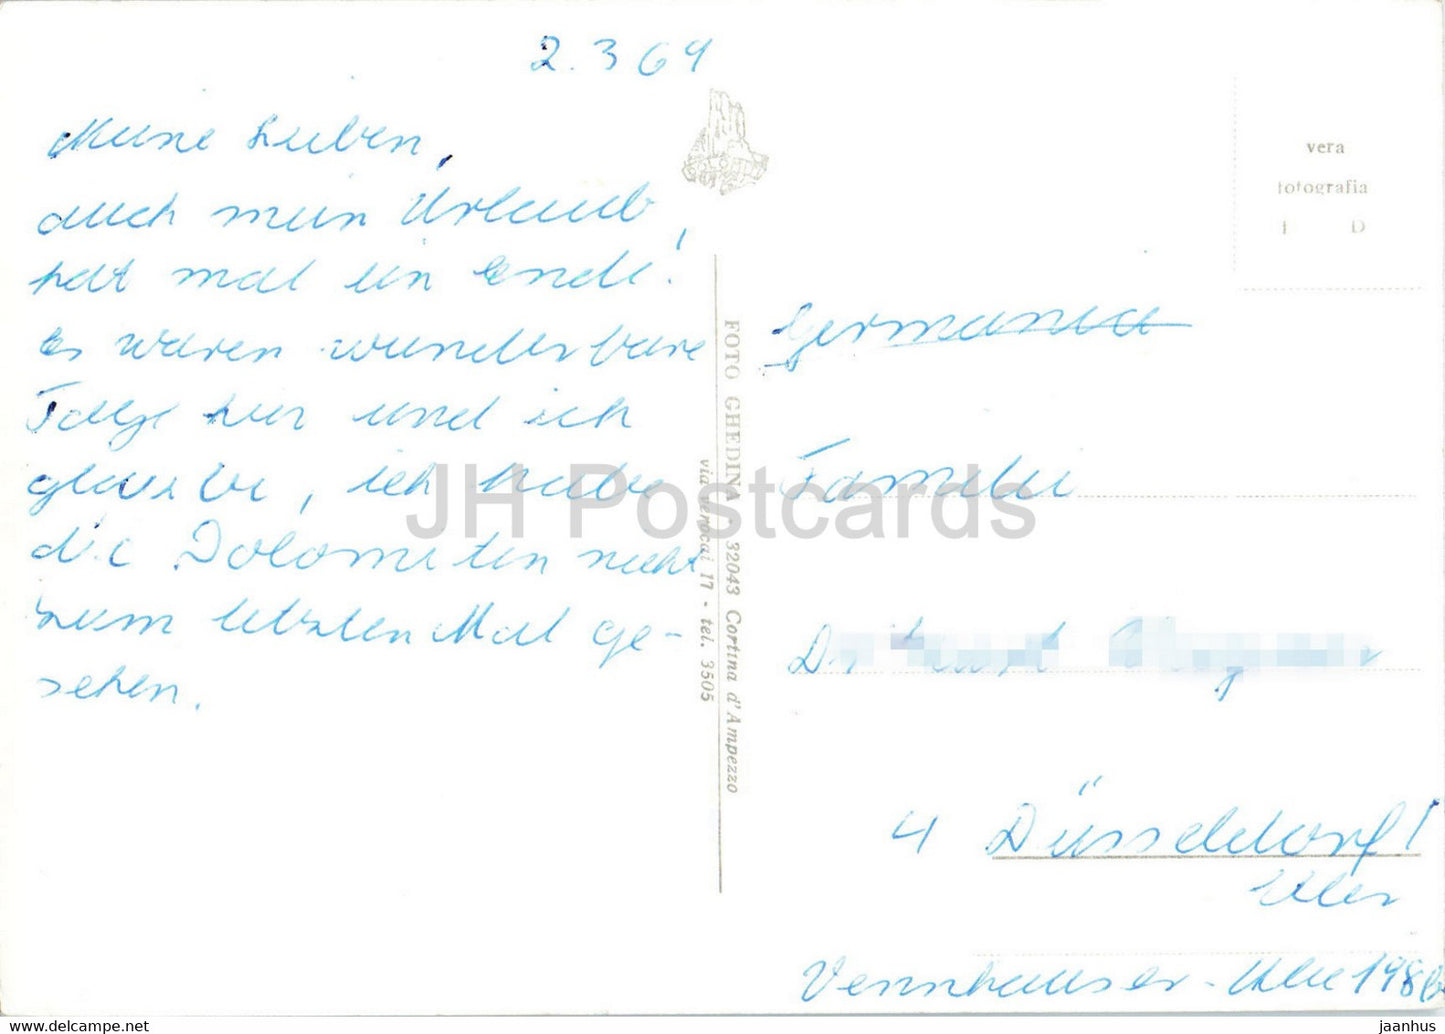 2.3 69
Meine Lieben,
auch mein Urlaub,
hat mal ein Ende!
Es waren wunderbare
Tage hier und ich
glaube, ich habe
die Dolomiten nicht
zum letzten Mal ge-
sehen.
FOTO GHEDINA - 32043 Cortina d'Ampezzo
via verocai 17 - tel. 3505
vera
fotografia
I D
Germania
Familie
4 Düsseldorf 1
Eller
Vennhauser-Allee 198
JH Postcards
jaanhus — https://www.jaanhus.com